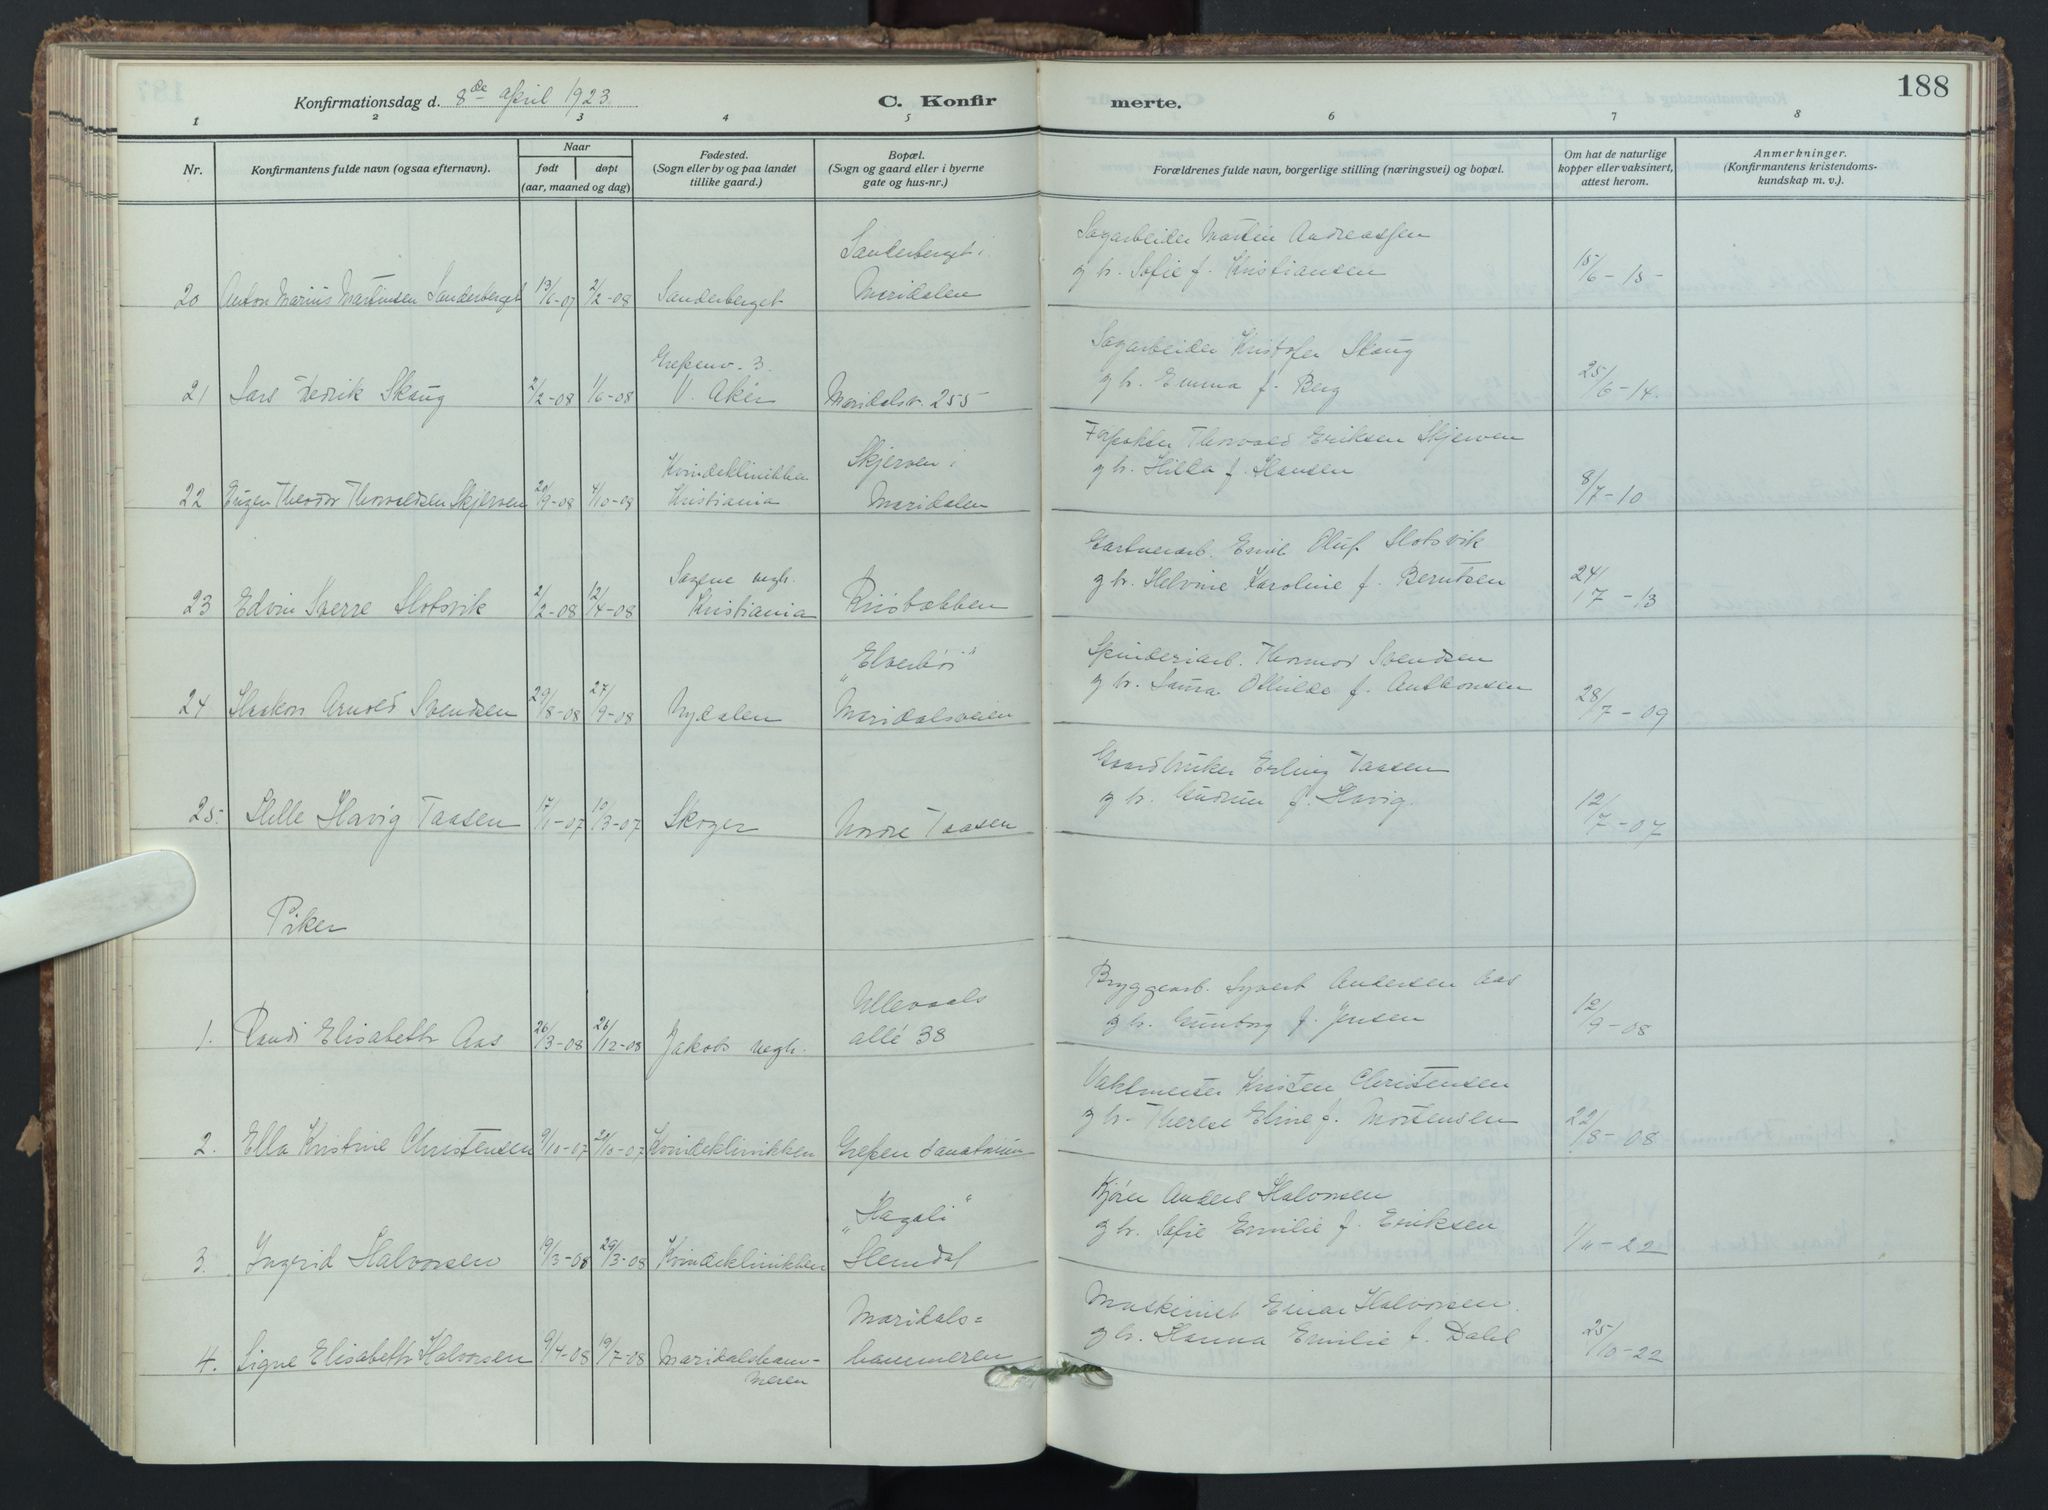 188
Konfirmationsdag d. 8de april 1923.
C. Konfirmerte.
1 2 3 4 5 6 7 8
Nr.
Konfirmantens fulde navn (ogsaa efternavn).
Naar
født døpt
(aar, maaned og dag)
Fødested.
(Sogn eller by og paa landet
tillike gaard.)
Bopæl.
(Sogn og gaard eller i byerne
gate og hus-nr.)
Forældrenes fulde navn, borgerlige stilling (næringsvei) og bopæl.
Om hat de naturlige
kopper eller vaksinert,
attest herom.
Anmerkninger.
(Konfirmantens kristendoms-
kundskap m. v.).
Sanderberget i
Sagarbeider Martin Andreassen
g hr. Sofie f. Kristiansen
20 Anton Marius Martinsen Sanderberget 13/6-07 2/2-08 Sanderberget Maridalen 15/6-15
Grefsenv. 3.
Sagarbeider Kristofer Skaug
g hr. Emma f. Berg
21 Lars Fredrik Skaug 2/2-08 1/6-08 V. Aker Maridalsv. 255 25/6-14.
Kvindeklinikken Skjerven i
Forpakter Thorvald Eriksen Skjerven
g hr. Hilda f. Hansen
22 Eugen Theodor Thorvaldsen Skjerven 20/9-08 4/10-08 Kristiania Maridalen 8/7-10
Sagene megh.
Gartnerarb. Emil Oluf Slotsvik
g hr. Helvine Karoline f. Berntsen
23 Edvin Sverre Slotsvik 2/2-08 12/4-08 Kristiania Riisbækken 24/7-13
"Elverhøi"
Spinderiarb. Thormod Svendsen
g hr. Laura Othilde f. Anthonsen
24 Haakon Arnold Svendsen 29/8-08 27/9-08 Nydalen Maridalsveien 28/7-09
Gaardbruker Erling Taasen
g hr. Gudrun f. Havig.
25. Helle Havig Taasen 17/1-07 10/3-07 Skoger Nordre Taasen 12/7-07
Piker
Ullevaals
Bryggearb. Syvert Andersen Aas
g hr. Gunborg f. Jensen
1. Randi Elisabeth Aas 26/3-08 26/12-08 Jakobs megh. allé 38 12/9-08
Vaktmester Kristen Christensen
g hr. Therese Eline f. Mortensen
2. Ella Kristine Christensen 9/10-07 24/10-07 Kvindeklinikken Grefsen Sanatorium 22/8-08
"Hagali"
Kjører Anders Halvorsen
g hr. Sofie Emilie f. Eriksen
3. Ingrid Halvorsen 19/3-08 29/3-08 Kvindeklinikken Slemdal 1/11-22
Maridals=
Maskinist Einar Halvorsen.
g hr. Hanna Emilie f. Dahl
4. Signe Elisabeth Halvorsen 9/4-08 19/7-08 Maridalsham- hammeren 25/10-22
meren